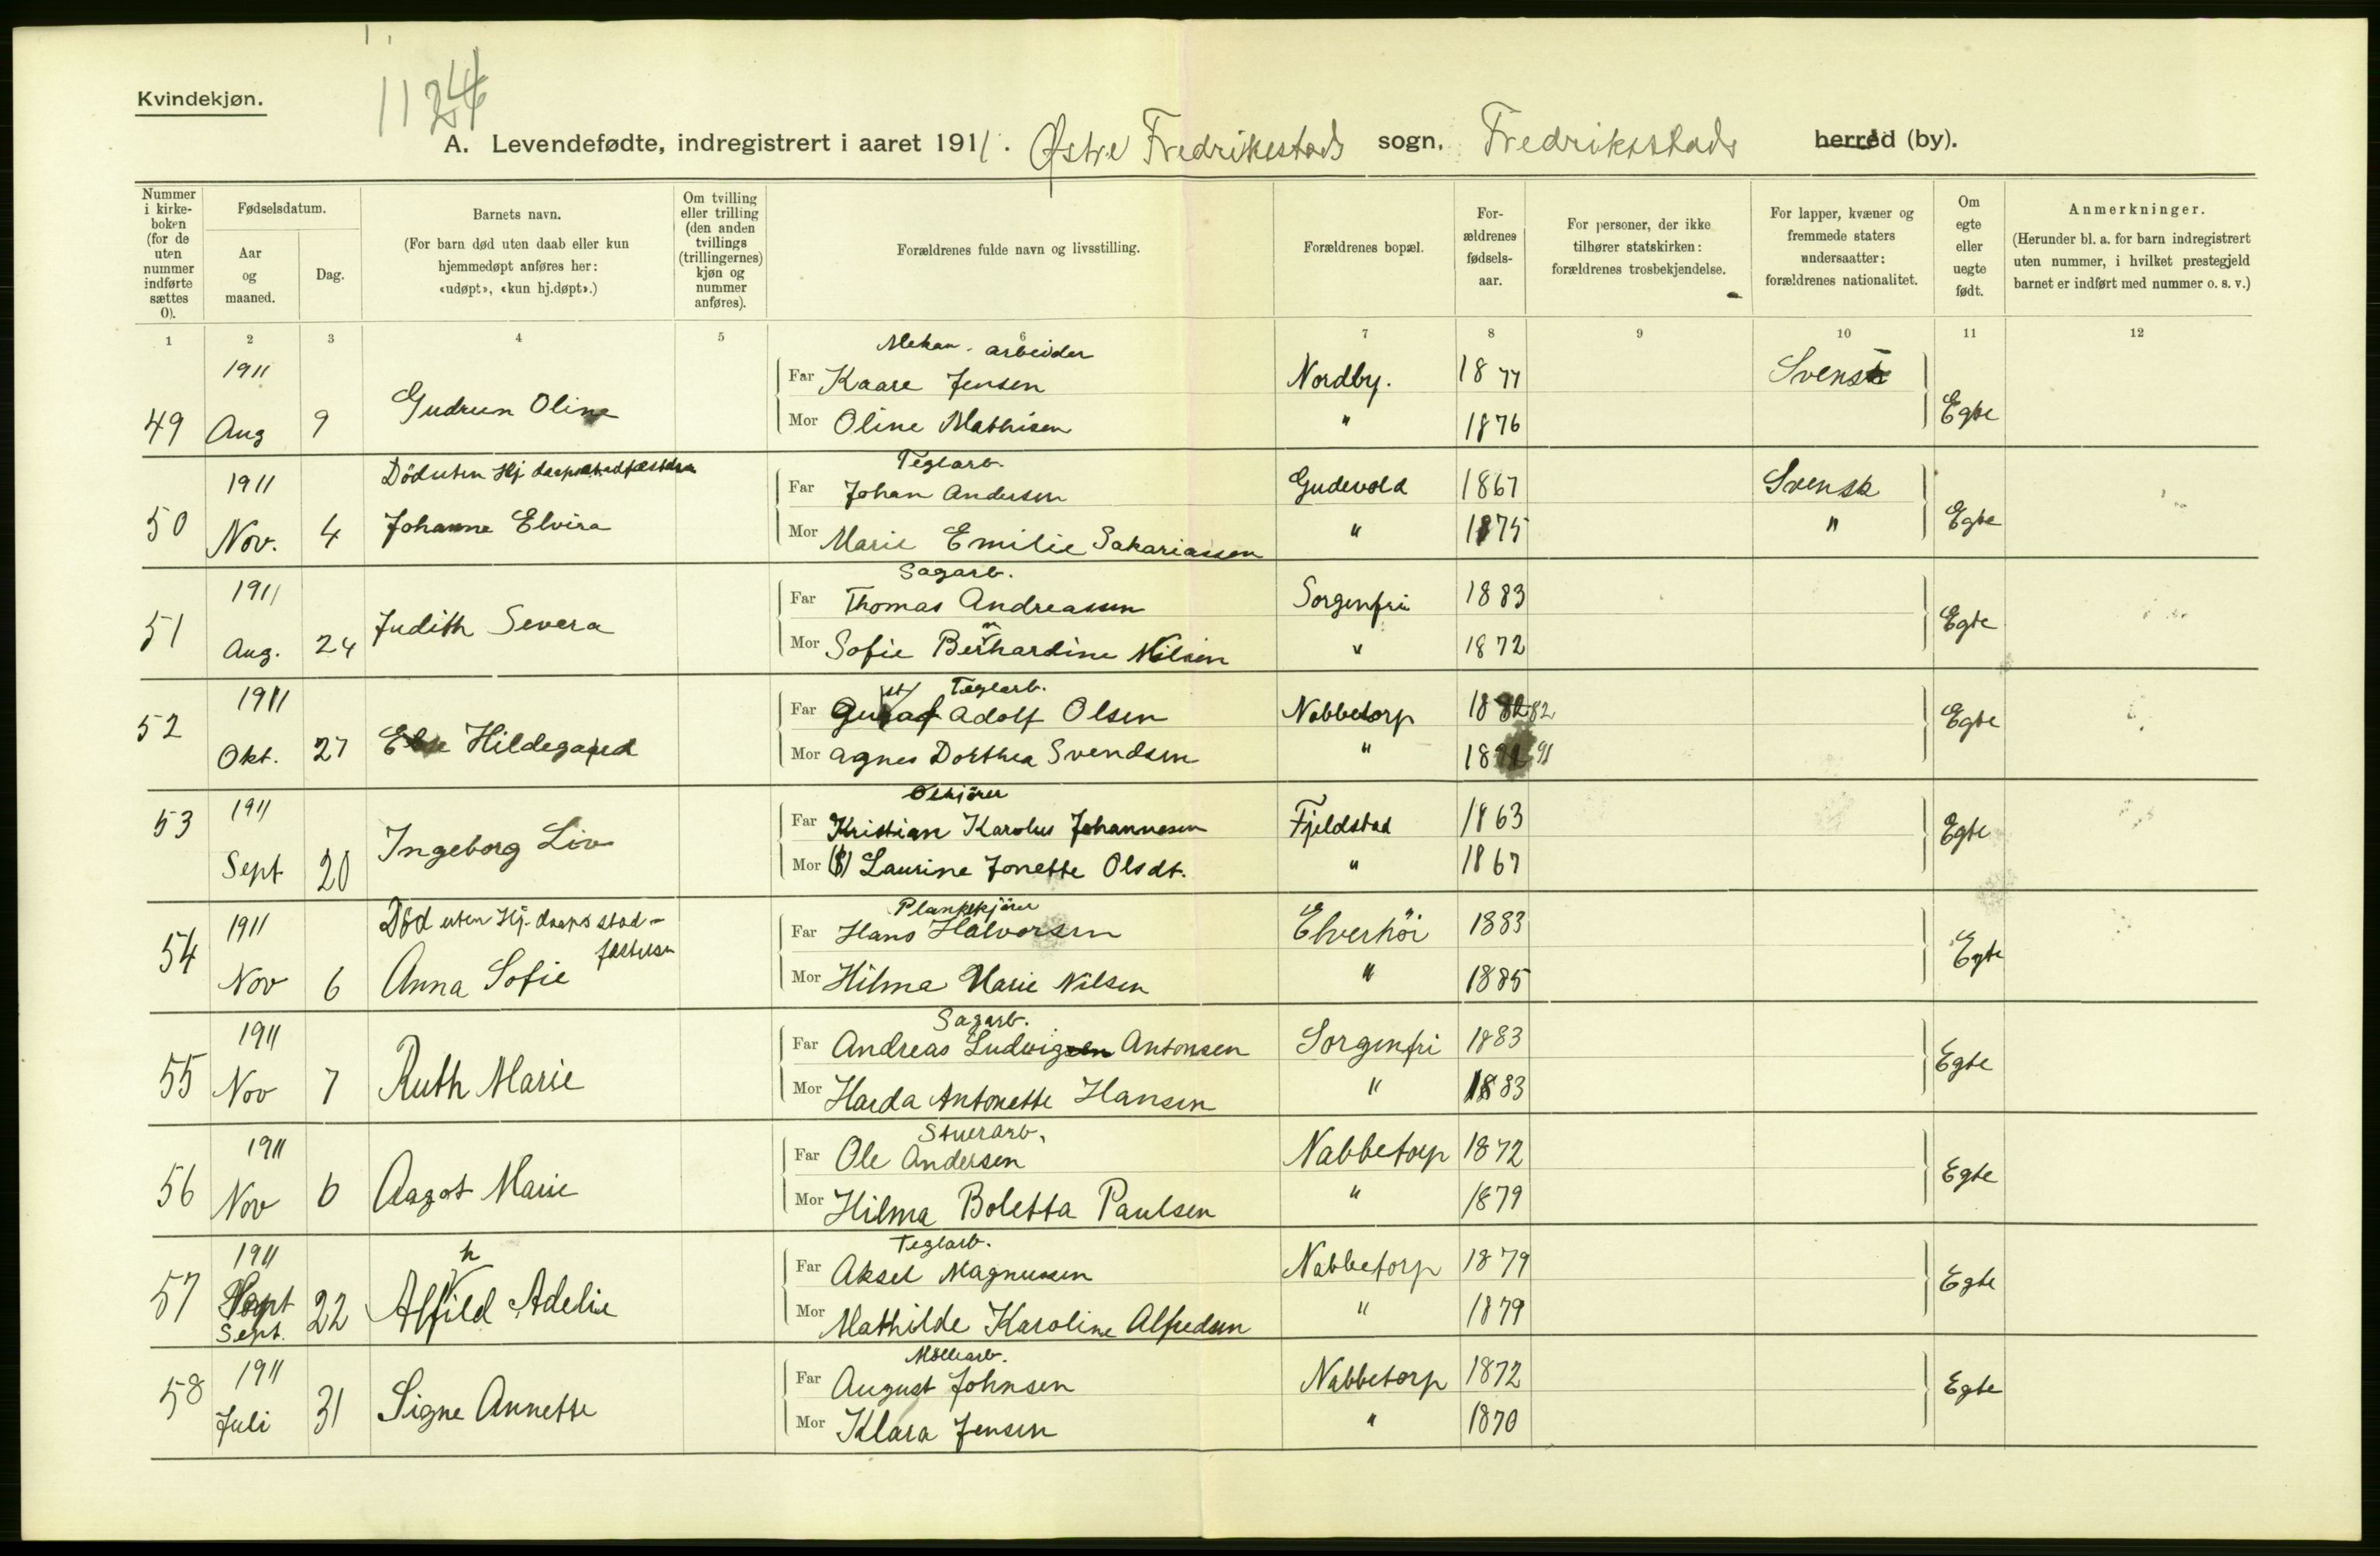 Kvindekjøn.
1124
A. Levendefødte, indregistrert i aaret 1911. Østre Fredrikstads sogn, Fredriksstads herred (by).
Nummer i kirke-boken (for de uten nummer indførte sættes 0).
Fødselsdatum.
Aar og maaned.
Dag.
Barnets navn.
(For barn død uten daab eller kun hjemmedøpt anføres her: «udøpt», «kun hj.døpt».)
Om tvilling eller trilling (den anden tvillings (trillingernes) kjøn og nummer anføres).
Forældrenes fulde navn og livsstilling.
Forældrenes bopæl.
For-ældrenes fødsels-aar.
For personer, der ikke tilhører statskirken: forældrenes trosbekjendelse.
For lapper, kvæner og fremmede staters undersaatter: forældrenes nationalitet.
Om egte eller uegte født.
Anmerkninger.
(Herunder bl. a. for barn indregistrert uten nummer, i hvilket prestegjeld barnet er indført med nummer o. s. v.)
1 2 3 4 5 6 7 8 9 10 11 12
Mekan. arbeider
1911 Far Kaare Jensen Nordby. 1877 Svensk
49 Aug 9 Gudrun Oline Mor Oline Mathisen " 1876 Egte
Død uten Hj. daapsstadfæstelse Teglarb.
1911 Far Johan Andersen Gudevold 1867 Svensk
50 Nov. 4 Johanne Elvira Mor Marie Emilie Sakariassen " 1875 " Egte
Sagarb.
1911 Far Thomas Andreassen Sorgenfri 1883
51 Aug. 24 Judith Severa Mor Sofie Bernhardine Nilsen " 1872 Egte
Teglarb.
1911 Far Gustaf Adolf Olsen Nabbetorp 1882 82
52 Okt. 27 Else Hildegard Mor Agnes Dorthea Svendsen " 1891 91 Egte
1911 Far Kristian Karolus Johannesen Fjeldstad 1863
53 Sept 20 Ingeborg Liv Mor Laurine Jonette Olsdt. " 1867 Egte
Død uten Hj. daaps stad-fæstelse Plankekjører
1911 Far Hans Halvorsen Elverhöi 1883
54 Nov 6 Anna Sofie Mor Hilma Marie Nilsen " 1885 Egte
Sagarb.
1911 Far Andreas Ludvigsen Antonsen Sorgenfri 1883
55 Nov 7 Ruth Marie Mor Harda Antonette Hansen " 1883 Egte
Stuerarb.
1911 Far Ole Andersen Nabbetorp 1872
56 Nov 6 Aagot Marie Mor Hilma Boletta Paulsen " 1879 Egte
Teglarb.
1911 Far Aksel Magnussen Nabbetorp 1879
57 Sept. 22 Alfhild Adelie Mor Mathilde Karoline Alfredsen " 1879 Egte
Möllearb.
1911 Far August Johnsen Nabbetorp 1872
58 Juli 31 Signe Annette Mor Klara Jensen " 1870 Egte